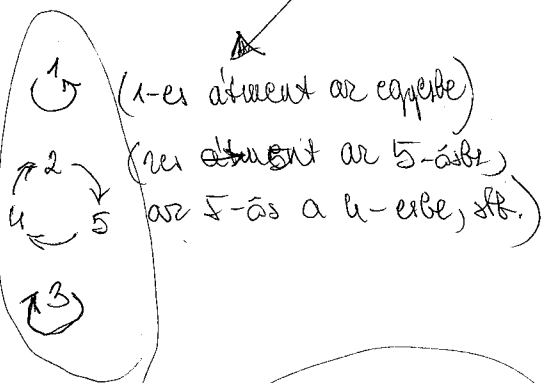 1 (1-es átment az egyesbe)
2 (2es átment az 5-ösbe,
4 5 az 5-ös a 4-esbe, stb.)
3